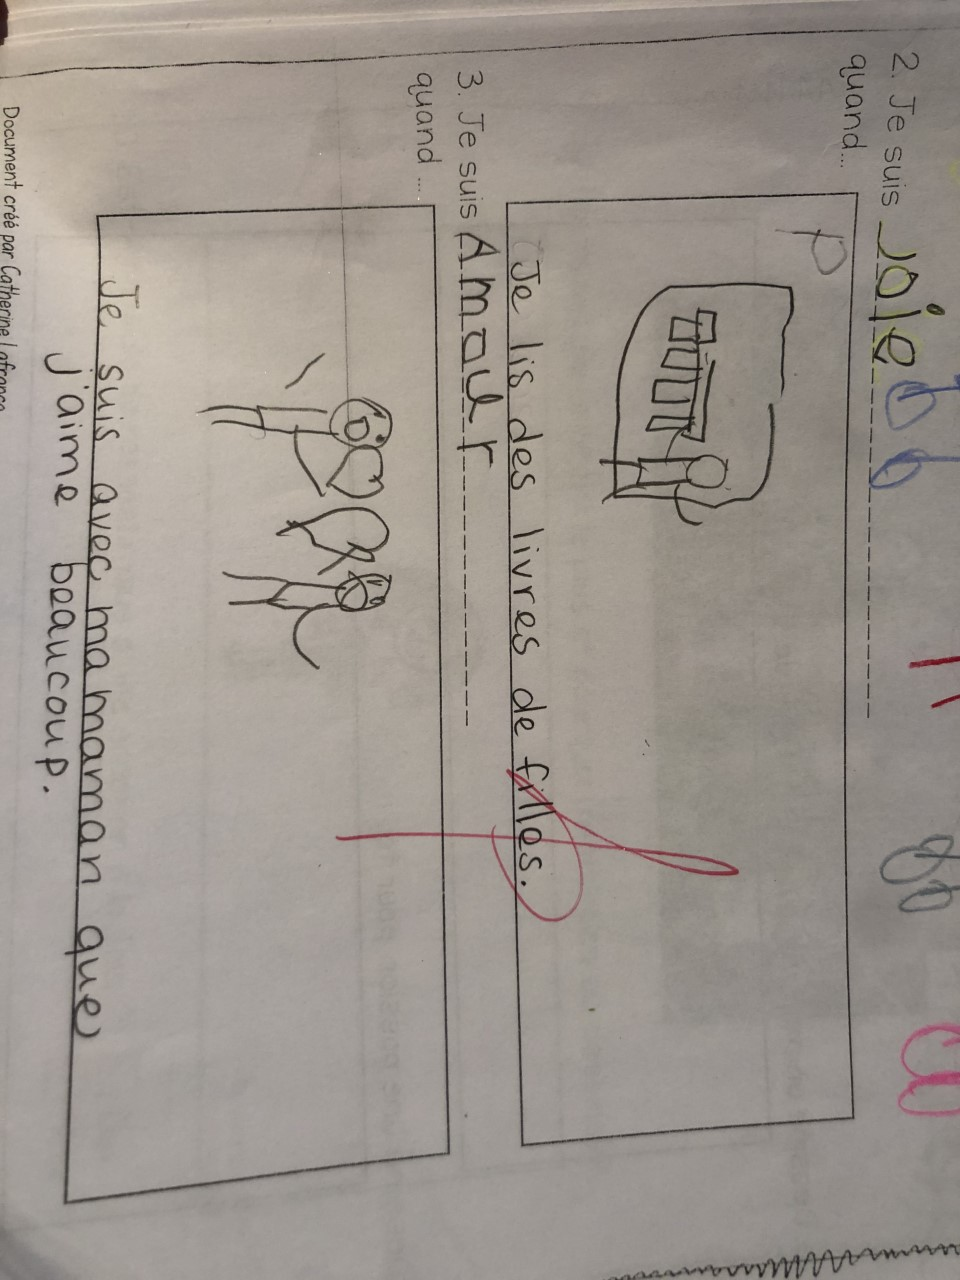 2. Je suis Joie
quand...
p
Je lis des livres de filles.
3. Je suis Amour
quand ...
Je suis avec ma maman que
j'aime beaucoup.
Document créé par Catherine Lafrance